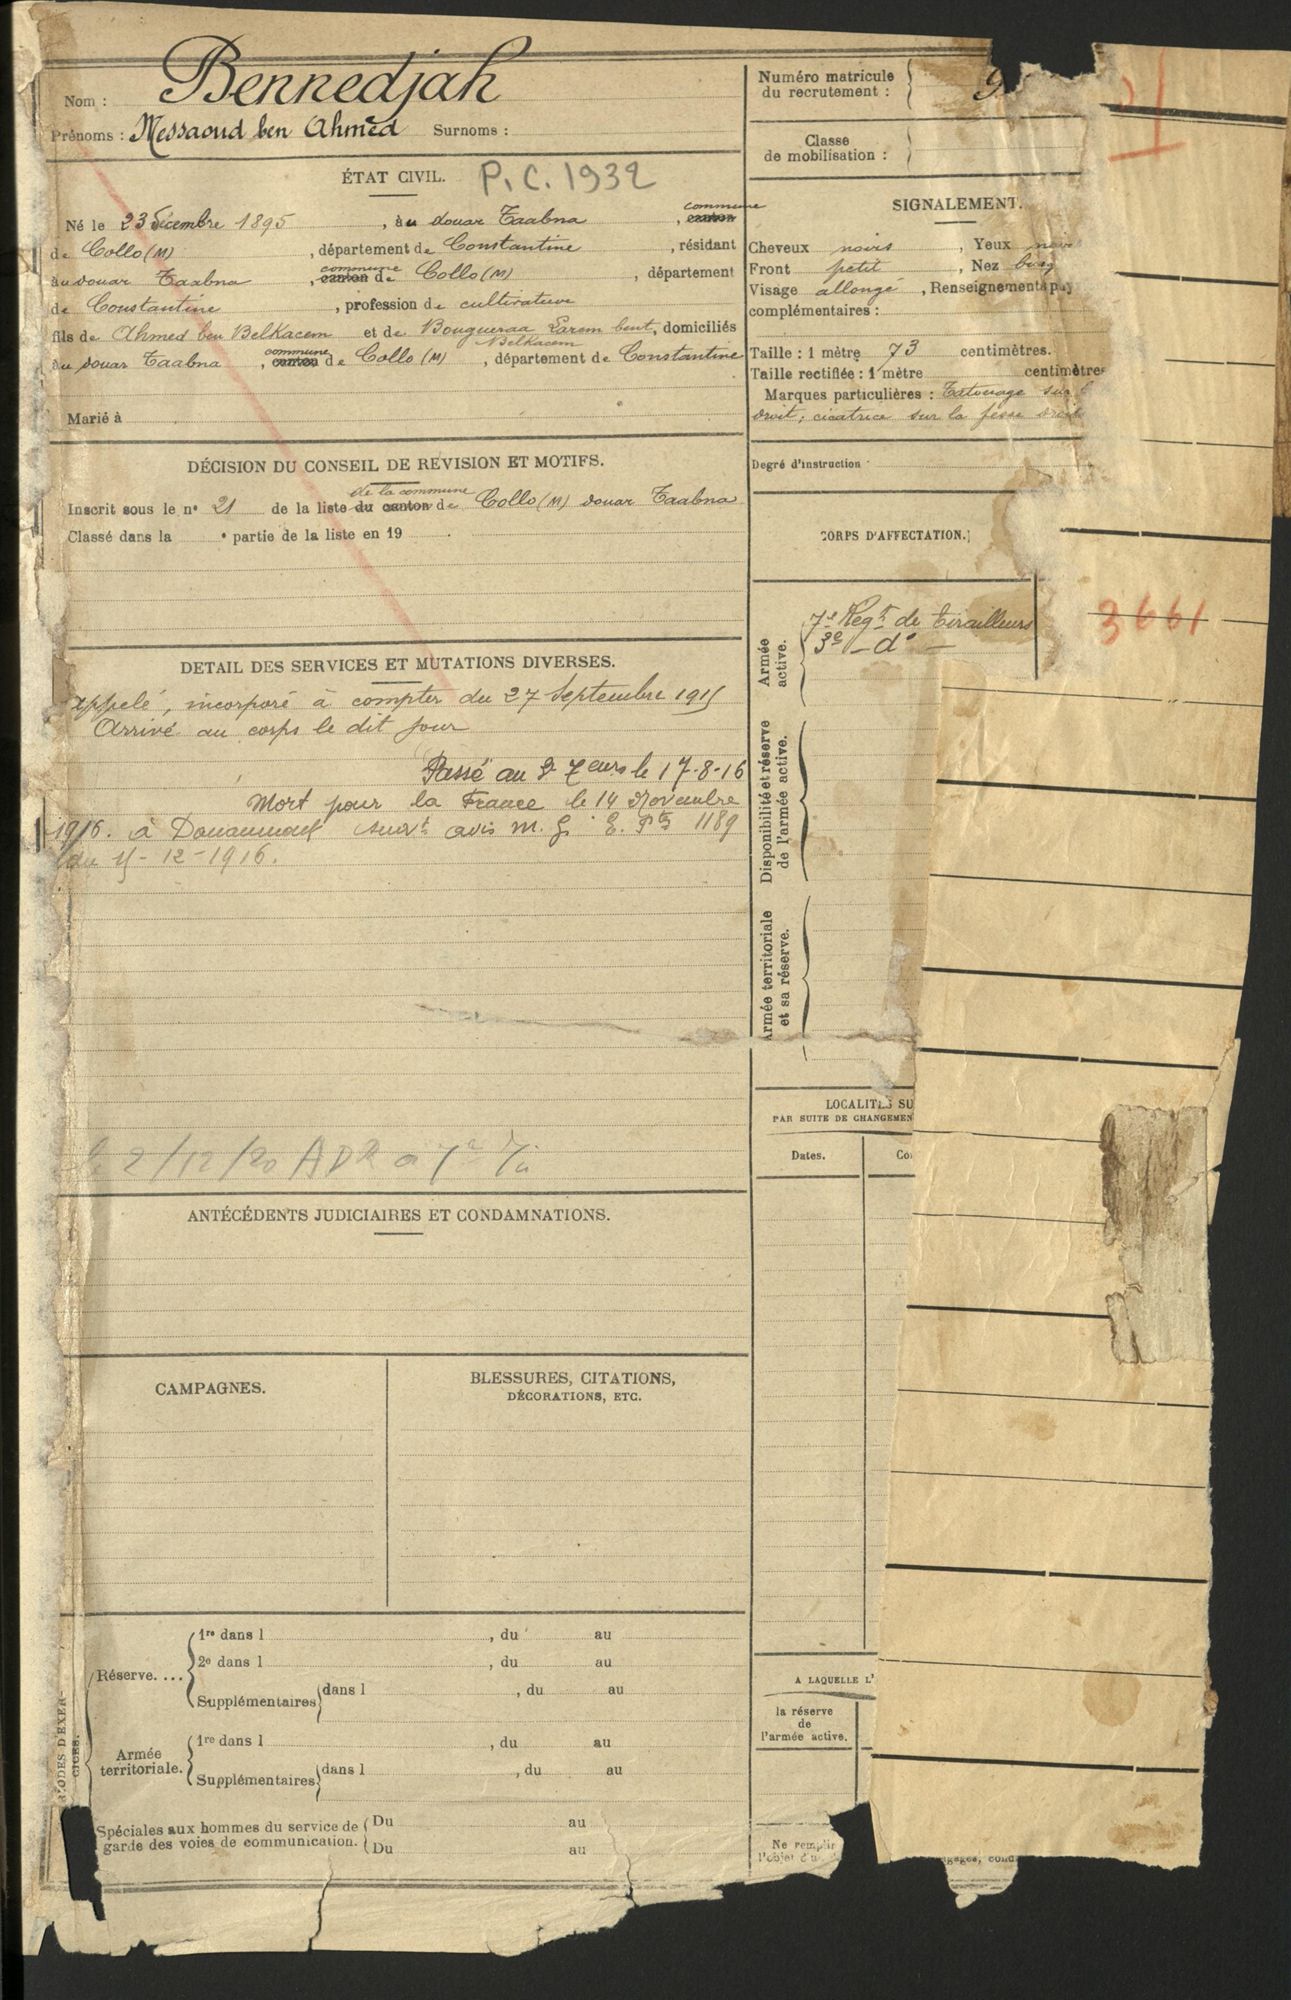 Nom : Bennedjah
Prénoms : Messaoud ben Ahmed Surnoms :
ÉTAT CIVIL. P.C. 1932
Né le 23 Décembre 1895, au douar Taabna, commune canton
de Collo (M), département de Constantine, résidant
au douar Taabna, commune canton de Collo (M), département
de Constantine, profession de cultivateur
fils de Ahmed ben Belkacem et de Bougueraa Larem bent, domiciliés
Belkacem
au douar Taabna, commune canton de Collo (M), département de Constantine
Marié à
DÉCISION DU CONSEIL DE REVISION ET MOTIFS.
de la commune
Inscrit sous le n° 21 de la liste du canton de Collo (M) douar Taabna
Classé dans la • partie de la liste en 19
DETAIL DES SERVICES ET MUTATIONS DIVERSES.
Appelé, incorporé à compter du 27 Septembre 1915
Arrivé au corps le dit jour
Passé au 3e Zeurs le 17-8-16
Mort pour la France le 14 Novembre
1916. à Douaumont suivt avis M. G. E. Pts 1189
du 15-12-1916.
2/12/20 ADR a 7e
ANTÉCÉDENTS JUDICIAIRES ET CONDAMNATIONS.
CAMPAGNES.
BLESSURES, CITATIONS,
DÉCORATIONS, ETC.
Réserve....
1re dans l , du au
2e dans l , du au
Supplémentaires dans l , du au
Armée
territoriale.
1re dans l , du au
Supplémentaires dans l , du au
Spéciales aux hommes du service de
garde des voies de communication.
Du au
Du au
Numéro matricule
du recrutement : 9
Classe
de mobilisation :
SIGNALEMENT.
Cheveux noirs, Yeux noirs
Front petit, Nez
Visage allongé, Renseignements phy
complémentaires :
Taille : 1 mètre 73 centimètres.
Taille rectifiée : 1 mètre centimètres
Marques particulières : Tatouage sur
droit ; cicatrice sur la fesse droite
Degré d'instruction
CORPS D'AFFECTATION.
Armée
active.
7e Regt de Tirailleurs
3e — do —
3661
Disponibilité et réserve
de l'armée active.
Armée territoriale
et sa réserve.
LOCALITÉS SU
PAR SUITE DE CHANGEMEN
Dates. Co
A LAQUELLE L'
la réserve
de
l'armée active.
Ne remplir
l'objet d'u